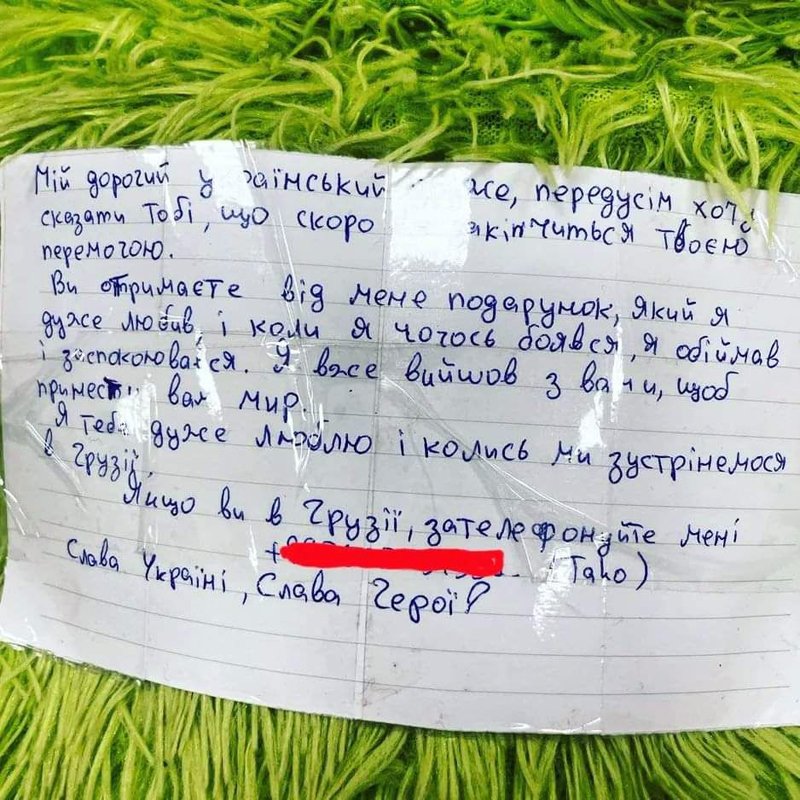 Мій дорогий у раїнський же, передусім хочу
сказати Тобі, що скоро акінчиться Твоєю
перемогою.
Ви отримаєте від мене подарунок, який я
дуже любив, і коли я чогось боявся, я обіймав
і заспокоювався. Я вже вийшов з вами, щоб
принести вам мир.
Я тебе дуже люблю і колись ми зустрінемося
в Грузії.
Якщо ви в Грузії, зателефонуйте мені
+ (Тако)
Слава Україні, Слава Герої